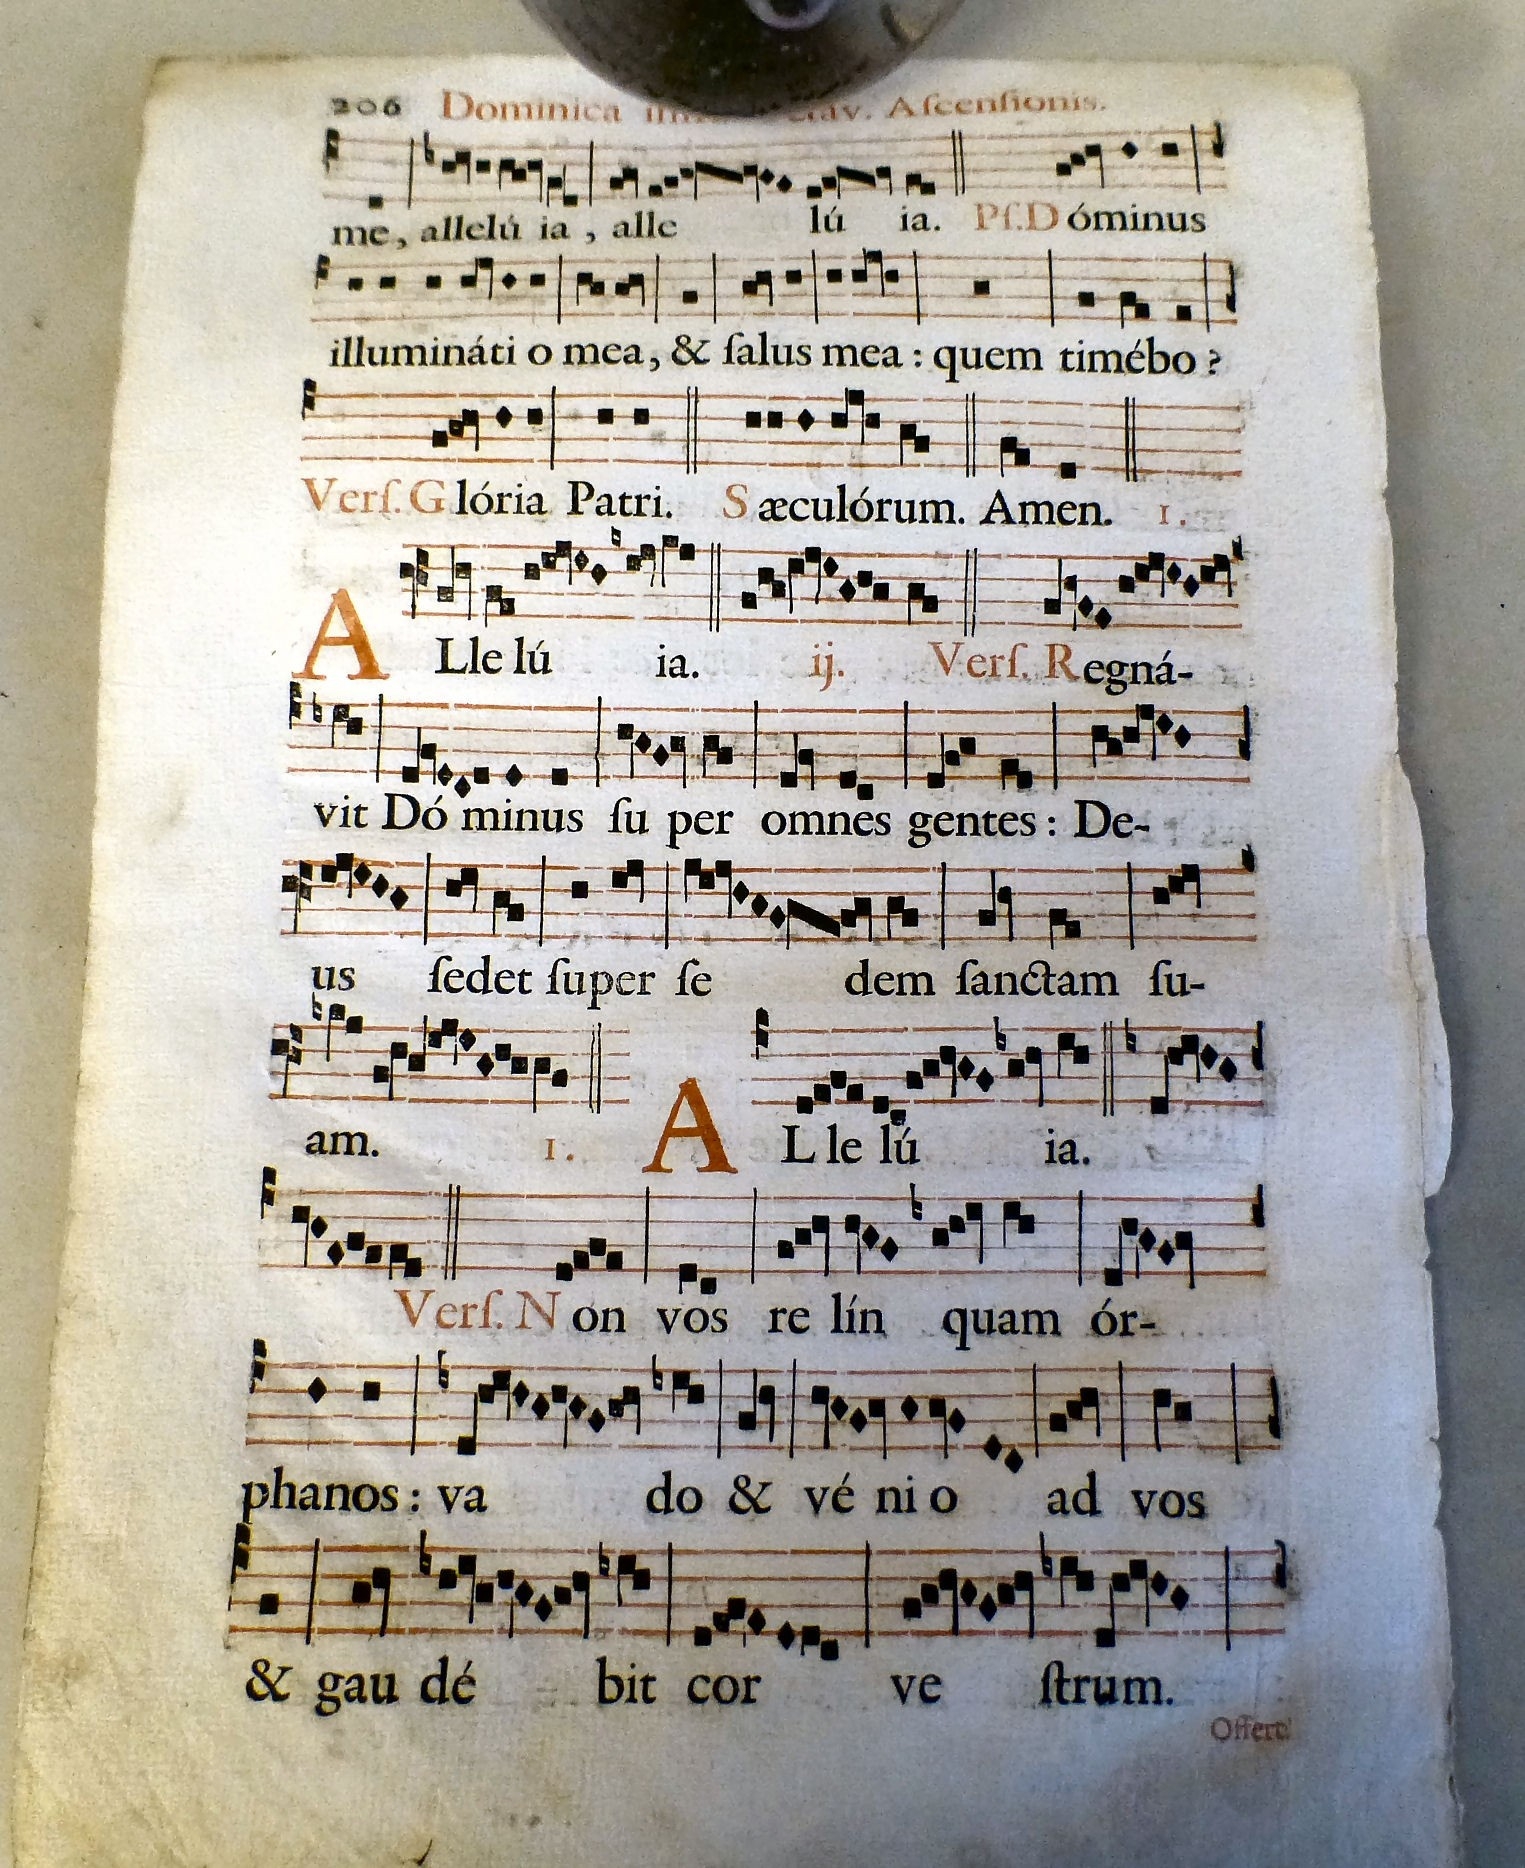 206 Dominica Ascensionis.
me, allelú ia, alle lú ia. Pſ. Dóminus
illumináti o mea, & ſalus mea : quem timébo ?
Verſ. Glória Patri. Sæculórum. Amen. 1.
ALle lú ia. ij. Verſ. Regná-
vit Dó minus ſu per omnes gentes : De-
us ſedet ſuper ſe dem ſanctam ſu-
am. 1. AL le lú ia.
Verſ. Non vos re lín quam ór-
phanos : va do & vé ni o ad vos
& gau dé bit cor ve ſtrum.
Offert.